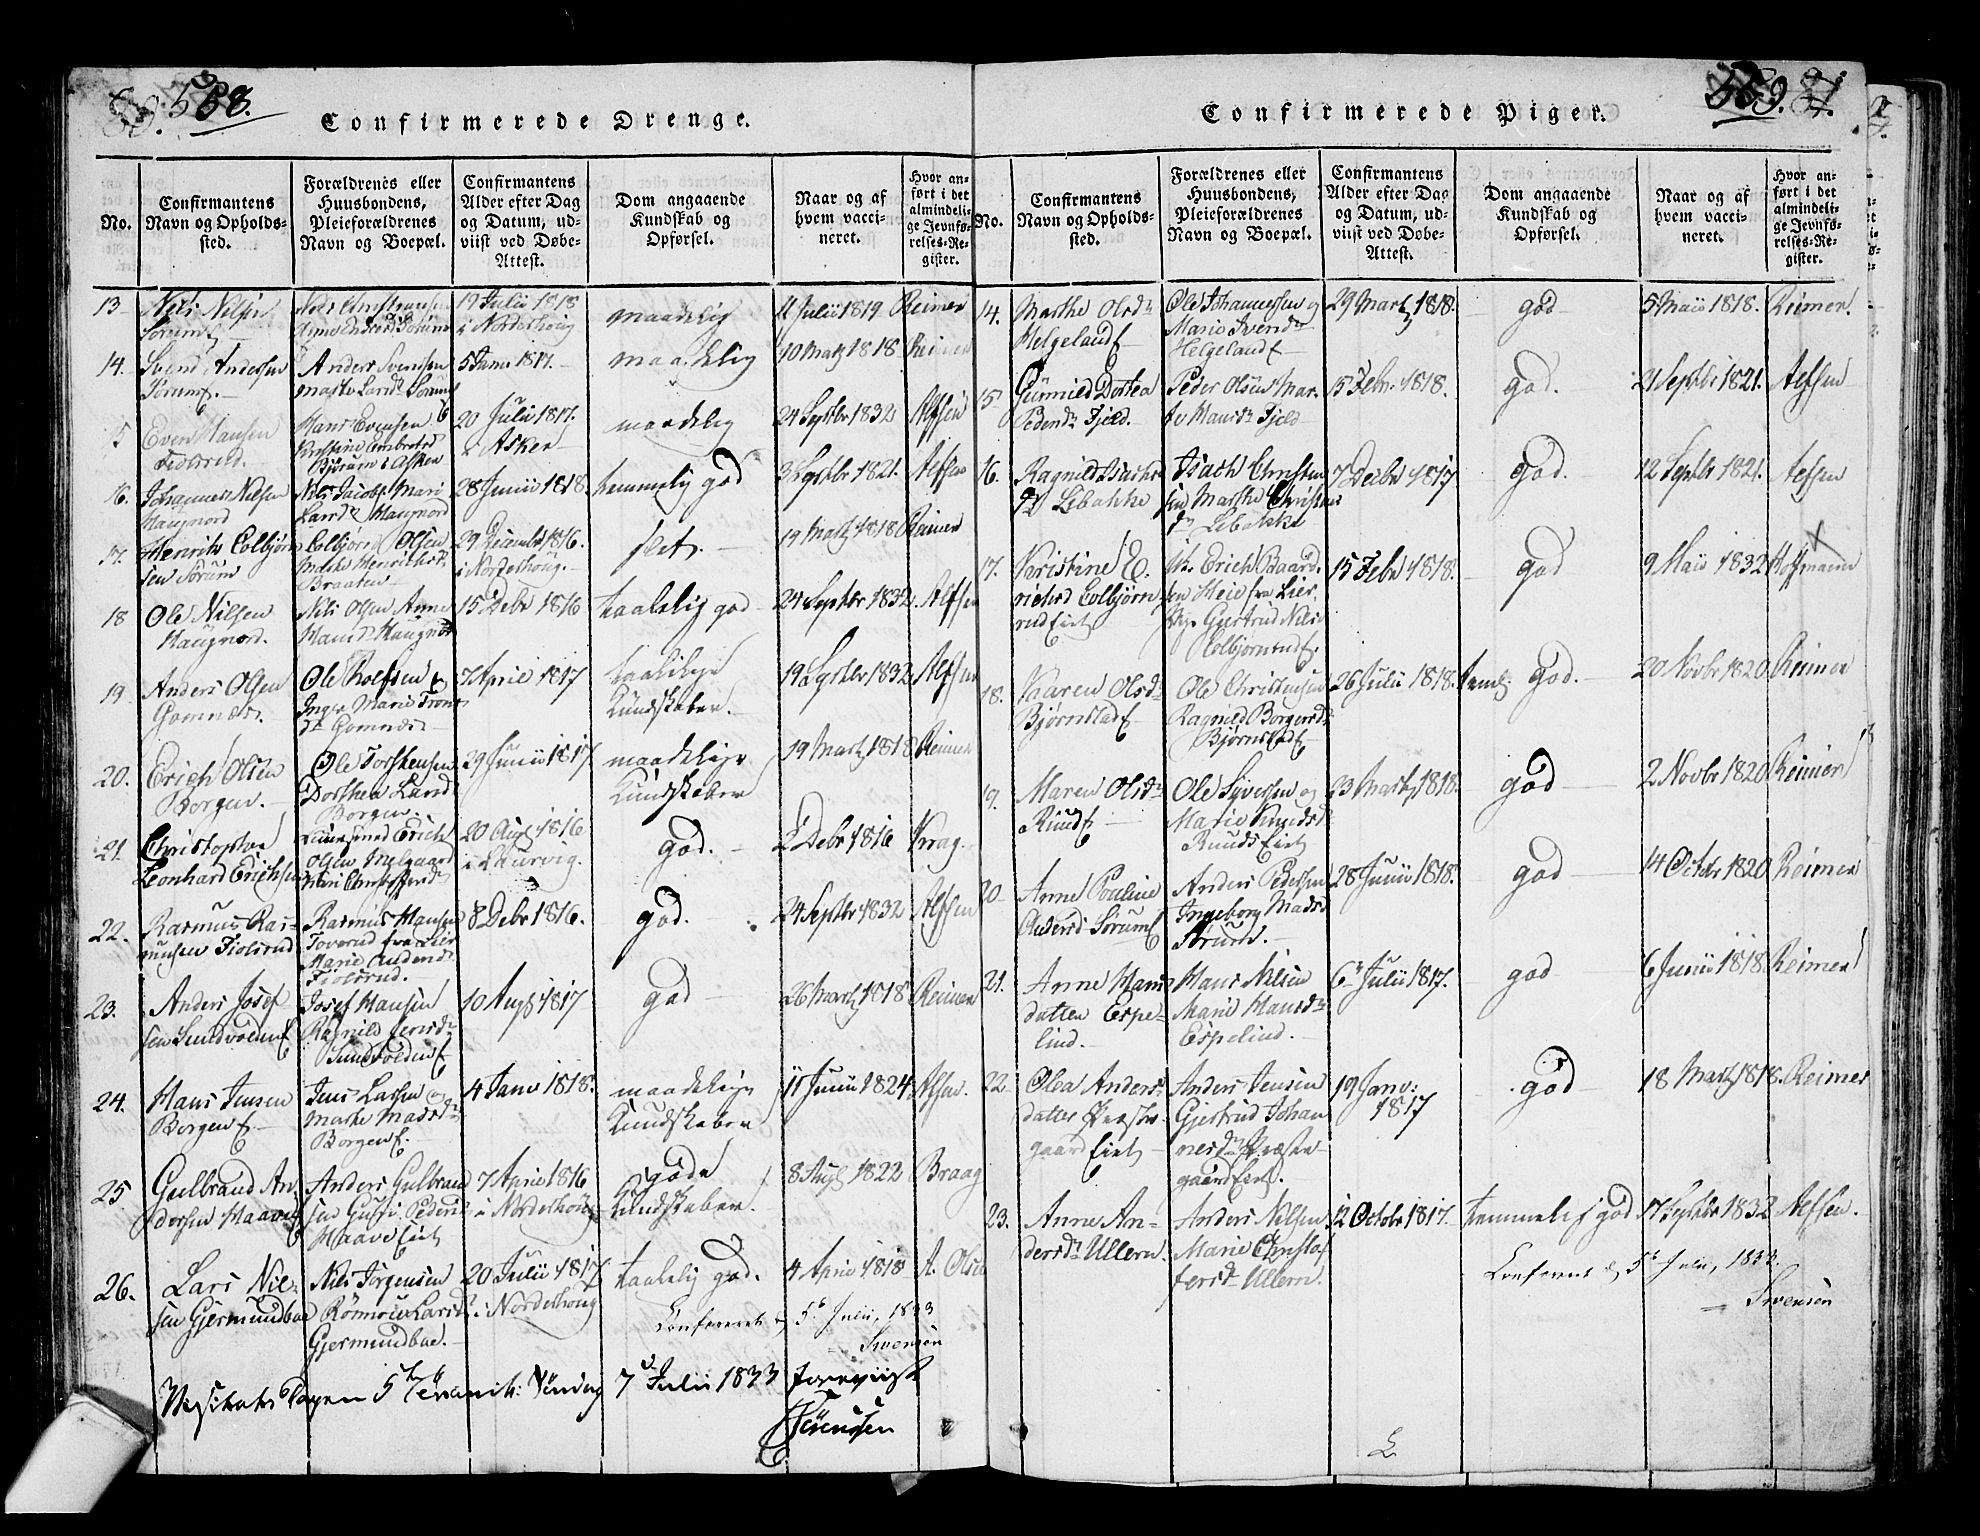 588.
Confirmerede Drenge.
No.
Confirmantens Navn og Opholds-sted.
Forældrenes eller Huusbondens, Pleieforældrenes Navn og Boepæl.
Confirmantens Alder efter Dag og Datum, ud-viist ved Døbe-Attest.
Dom angaaende Kundskab og Opførsel.
Naar og af hvem vacci-neret.
Hvor an-ført i det almindeli-ge Jevnfø-relses-Re-gister.
13 Niels Nilsen
11 Julii 1819 Reimer
19 Julii 1818
i Norderhoug
maadelig
14. Svend Andersen
Anders Svensen
5 Janv 1817.
maadelig
10 Martz 1818 Reimer
Even Hansen
Hans Evensen
20 Julii 1817.
i Asker
maadelig
24 Septbr 1832 Alfsen
16. Johannes Nilsen
Haugnord
28 Junii 1818.
temmelig god
3 Septbr 1821. Alfsen
17. Henrik Colbjørn
sen Sørum
Colbjørn Olsen
Braaten
29 Decembr 1816.
i Norderhoug.
slet.
19 Martz 1818 Reimer
18 Ole Nilsen
Haugnord.
Nils Olsen Anne
Hansd Haugnord
15 Debr 1816
taalelig god
24 Septbr 1832 Alfsen
19 Anders Olsen
Gomnæs.
Ole Rolfsen
Inger Marie
Gomnæs
7 April 1817
taalelige
Kundskaber.
19 Septbr 1832 Alfsen
20. Erich Olsen
Borgen.
Ole Torstensen
Dorthea Larsd
Borgen
29 Junii 1817
maadelige
Kundskaber
19 Martz 1818 Reimer
21. Christopher
Leonhard Erichsen
20 Aug 1816
i Laurvig.
god.
2 Debr 1816 Krag
22. Rasmus Ras-
musen Fiolsrud
Rasmus Hansen
Toverud fra Lier
Marie
Fiolsrud.
8 Debr 1816.
god.
24 Septbr 1832 Alfsen
23. Anders Josef
sen Sundvolden
Josef Hansen
Ragnild Jensd
Sundvolden
10 Aug 1817
god
26 Martz 1818 Reimer
24. Hans Jensen
Borgen
Jens Larsen og
Marthe Madsd
Borgen
4 Janv 1818.
maadelige
Kundskaber
11 Junii 1824 Alfsen.
25 Gulbrand An
dersen Haavei
Anders Gulbrand
sen
7 April 1816
i Norderhoug
gode
Kundskaber.
8 Aug 1822 Braag
26. Lars Nil-
sen Gjermundboe
Nils Jørgensen
Rønnou Larsd
Gjermundboe.
20 Julii 1817
i Norderhoug
taalelig god.
4 April 1818 A. Olsen
Confereret d 5te Julii, 1833
Svensen
7d Julii 1833 foreviist
Sørenssen
559.
Confirmerede Piger.
No.
Confirmantens Navn og Opholds-sted.
Forældrenes eller Huusbondens, Pleieforældrenes Navn og Boepæl.
Confirmantens Alder efter Dag og Datum, ud-viist ved Døbe-Attest.
Dom angaaende Kundskab og Opførsel.
Naar og af hvem vacci-neret.
Hvor an-ført i det almindeli-ge Jevnfø-relses-Re-gister.
14. Marthe Olsdr
Helgeland
Ole Johannesen og
Marie Svensdr
Helgeland
29 Martz 1818.
god
5 Maii 1818. Reimer.
15 Gunnild Dortea
Pedersdr Fjeld.
Peder Olsen Mar-
te Hansdr Fjeld
15 Febr. 1818.
god.
21 Septbr 1821. Alfsen
16. Ragnild Isachs
dr Libakke
Isach Christen
sen Marthe Christens
dr Libakke
7 Decbr 1817
god.
12 Septbr 1821. Alfsen
17. Kristine E.
richsd Colbjørn
rud Eiet
Erich Baard
sen Heie fra Lier
Gjertrud Nils
Colbjørnrud
15 Febr 1818.
god
9 Maii 1832 Hoffmann
18. Karen Olsdr
Bjørnstad
Ole Christensen
Ragnild Borgersdr
Bjørnstad
26 Julii 1818.
teml. god.
20 Novbr 1820 Reimer
19. Maren Olsdr
Ruud
Ole Syversen og
Marie Knudsd
Ruuds Eiet
23 Martz 1818.
god
2 Novbr 1820 Reimer
20 Anne Pouline
Andersd Sørum
Anders Pedersen
Ingeborg Madsd
Sørum.
28 Junii 1818.
god
14 Octobr 1820 Reimer
21. Anne Hans
datter Espe-
lund.
Hans Nilsen
Marie Hansdr
Espelund.
6 Julii 1817.
god
6 Junii 1818. Reimer
22 Olea Anders
datter Præste-
gaard Eiet
Anders Jensen
Gjertrud Johan
nesdr Præste
gaard Eiet.
19 Janv:
1817
god
18 Martz 1818. Reimer
23. Anne An-
dersdr Ullern.
Anders Nilsen
Marie Christof
fersdr Ullern.
12 Octobr 1817.
temmelig god
17 Septbr 1832 Alfsen.
Confereret d 5te Julii, 1833.
Svensen